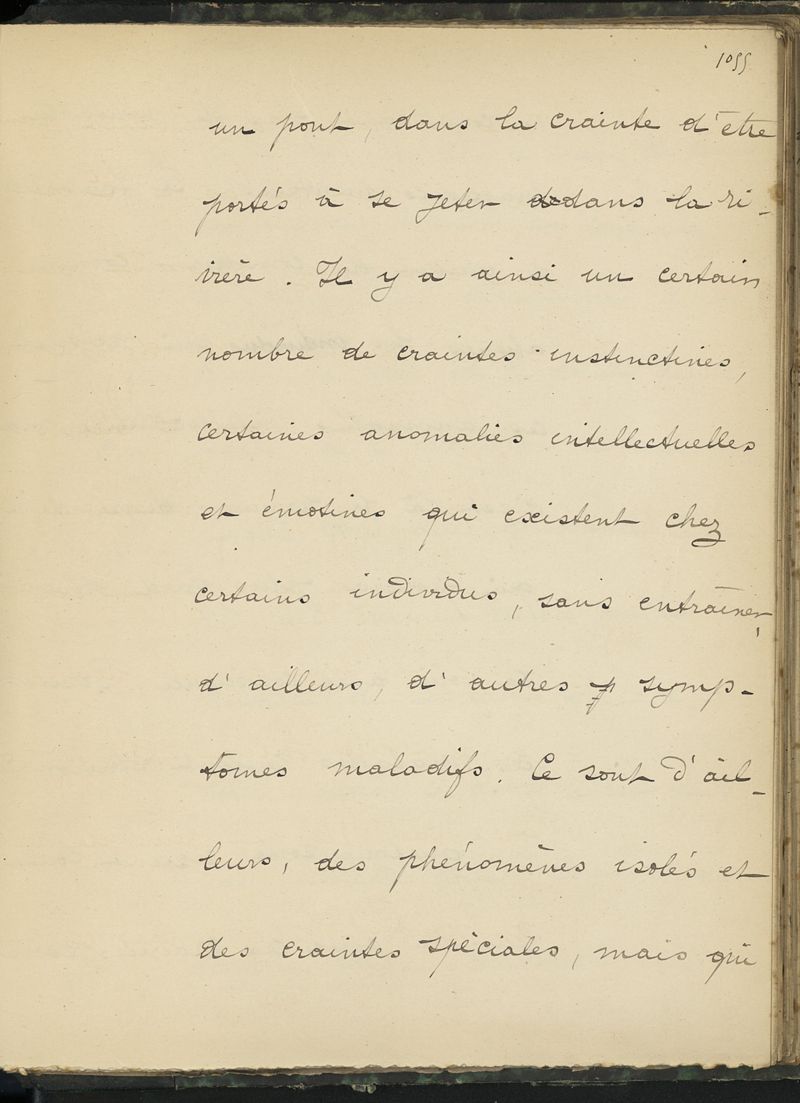 1055
un pont, dans la crainte d'être
portés à se jeter dans la ri-
vière. Il y a ainsi un certain
nombre de craintes instinctives,
certaines anomalies intellectuelles
et émotives qui existent chez
certains individus, sans entraîner,
d'ailleurs, d'autres symp-
tomes maladifs. Ce sont d'ail-
leurs, des phénomènes isolés et
des craintes spéciales, mais qui